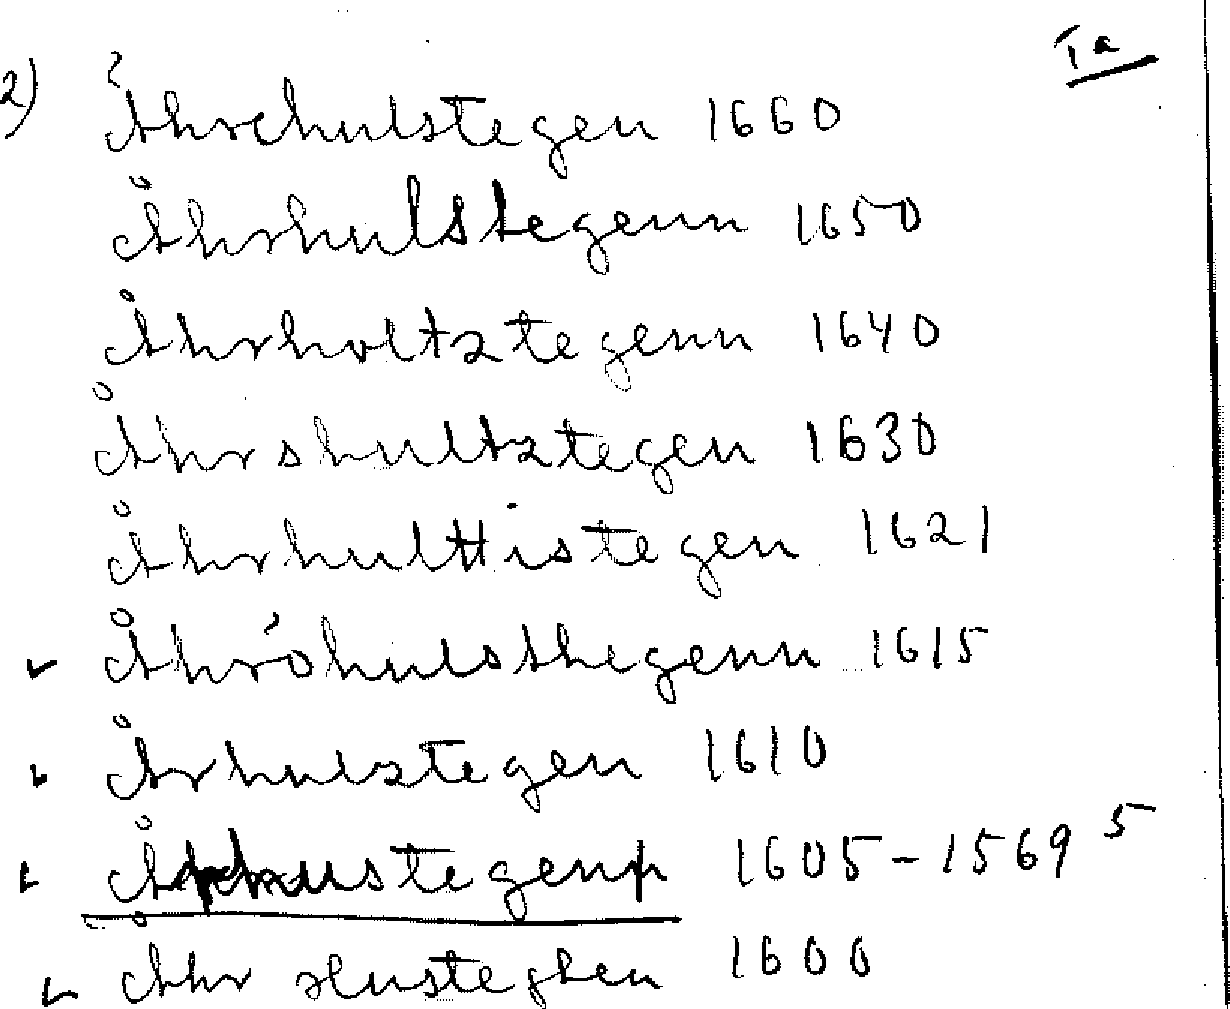 Ta
2) Åhrchulstegen 1660
Åhrhulstegenn 1650
Åhrholtztegenn 1640
Åhrshultztegen 1630
Åhrhulttistegen 1621
Åhróhulsthegenn 1615
Århulztegen 1610
1605-1569 5
Åhr Husteghen 1600